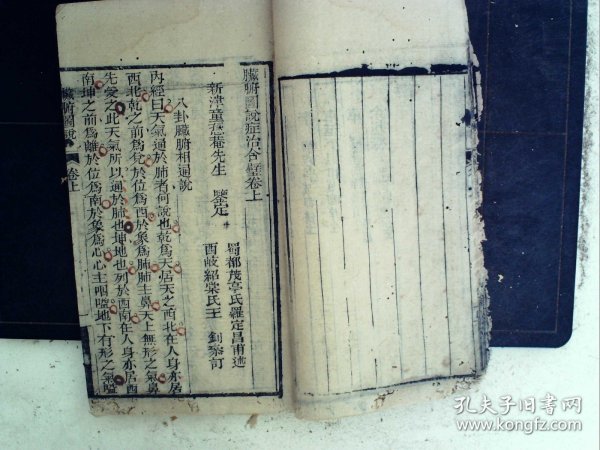 臟腑圖說症治合璧卷上
新津童 先生 鑒定
蜀都茂亭氏羅定昌甫述
酉岐紹棠氏王 釗黎訂
八卦臟腑相通說
內經曰天氣通於肺者何說也乾為天居天之西北在人身亦居
西北乾之前為兌於位為西於象為肺肺主鼻天上無形之氣鼻
先受之此天氣所以通於肺也坤地也列於西南在人身亦居西
南坤之前為離於位為南於象為心心主咽嗌地下有形之氣嗌
臟腑圖說
卷上
孔夫子旧书网
www.kongfz.com